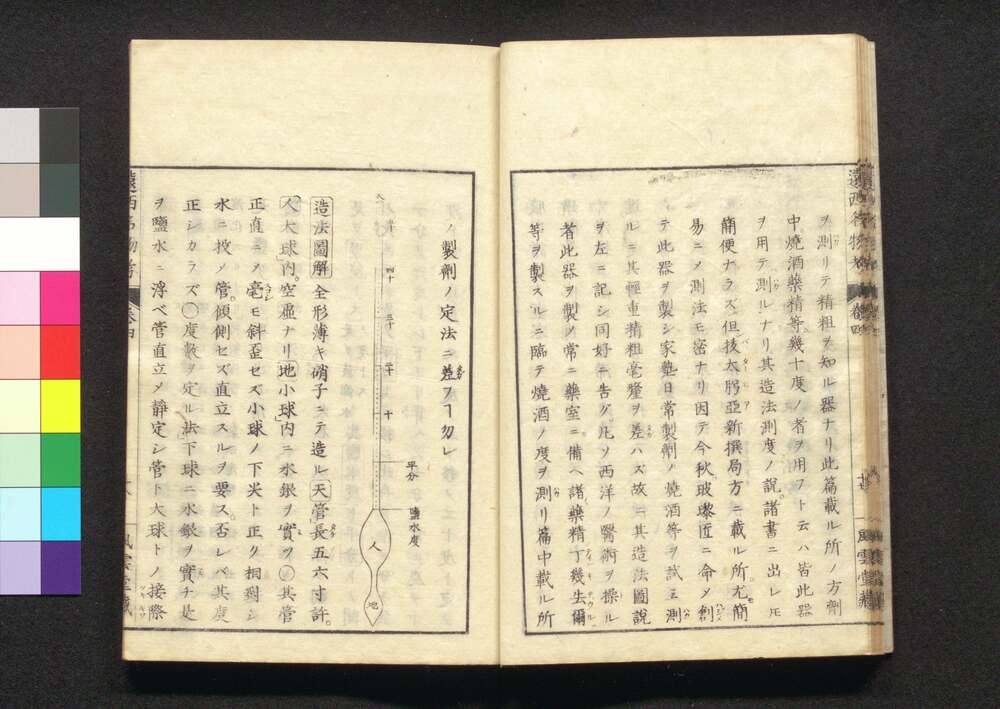 遠西名物考 卷四
風雲堂藏
ヲ測リテ精粗ヲ知ル器ナリ此篇載ル所ノ方劑
中燒酒藥精等幾十度ノ者ヲ用フト云ハ皆此器
ヲ用テ測ルナリ其造法測度ノ說諸書ニ出レ𪜈
簡便ナラズ但扶太抅亞新撰局方ニ載ル所尤簡
易ニメ測法モ密ナリ因テ今秋玻瓈匠ニ命メ創
テ此器ヲ製シ家塾日常製劑ノ燒酒等ヲ試ミ測
ルニ其輕重精粗毫釐ヲ差ハズ故ニ其造法圖說
ヲ左ニ記シ同好ニ告グ凡ソ西洋ノ醫術ヲ操ル
者此器ヲ製メ常ニ藥室ニ備ヘ諸藥精丁幾失爾
等ヲ製スルニ臨テ燒酒ノ度ヲ測リ篇中載ル所
ノ製劑ノ定法ニ差フヿ勿レ
四十
三十
二十
十
平分
鹽水度
人
地
造法圖解 全形薄キ硝子ニテ造ル天管長五六寸許。
人大球內。空虛ナリ地小球內ニ水銀ヲ實ツ〇其管
正直ニメ毫モ斜歪セズ小球ノ下尖ト正ク相對シ
水ニ投メ管。傾側セズ直立スルヲ要ス。否レバ其度
正シカラズ〇度數ヲ定ル法下球ニ水銀ヲ實テ是
ヲ鹽水ニ浮ベ管直立メ靜定シ管ト大球トノ接際
遠西名物考 卷四
風雲堂藏